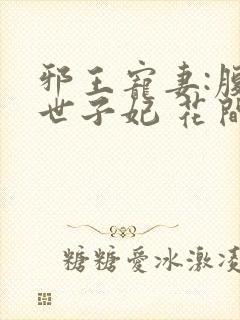 邪王寵妻:腹
世子妃 花間
糖糖愛冰激凌